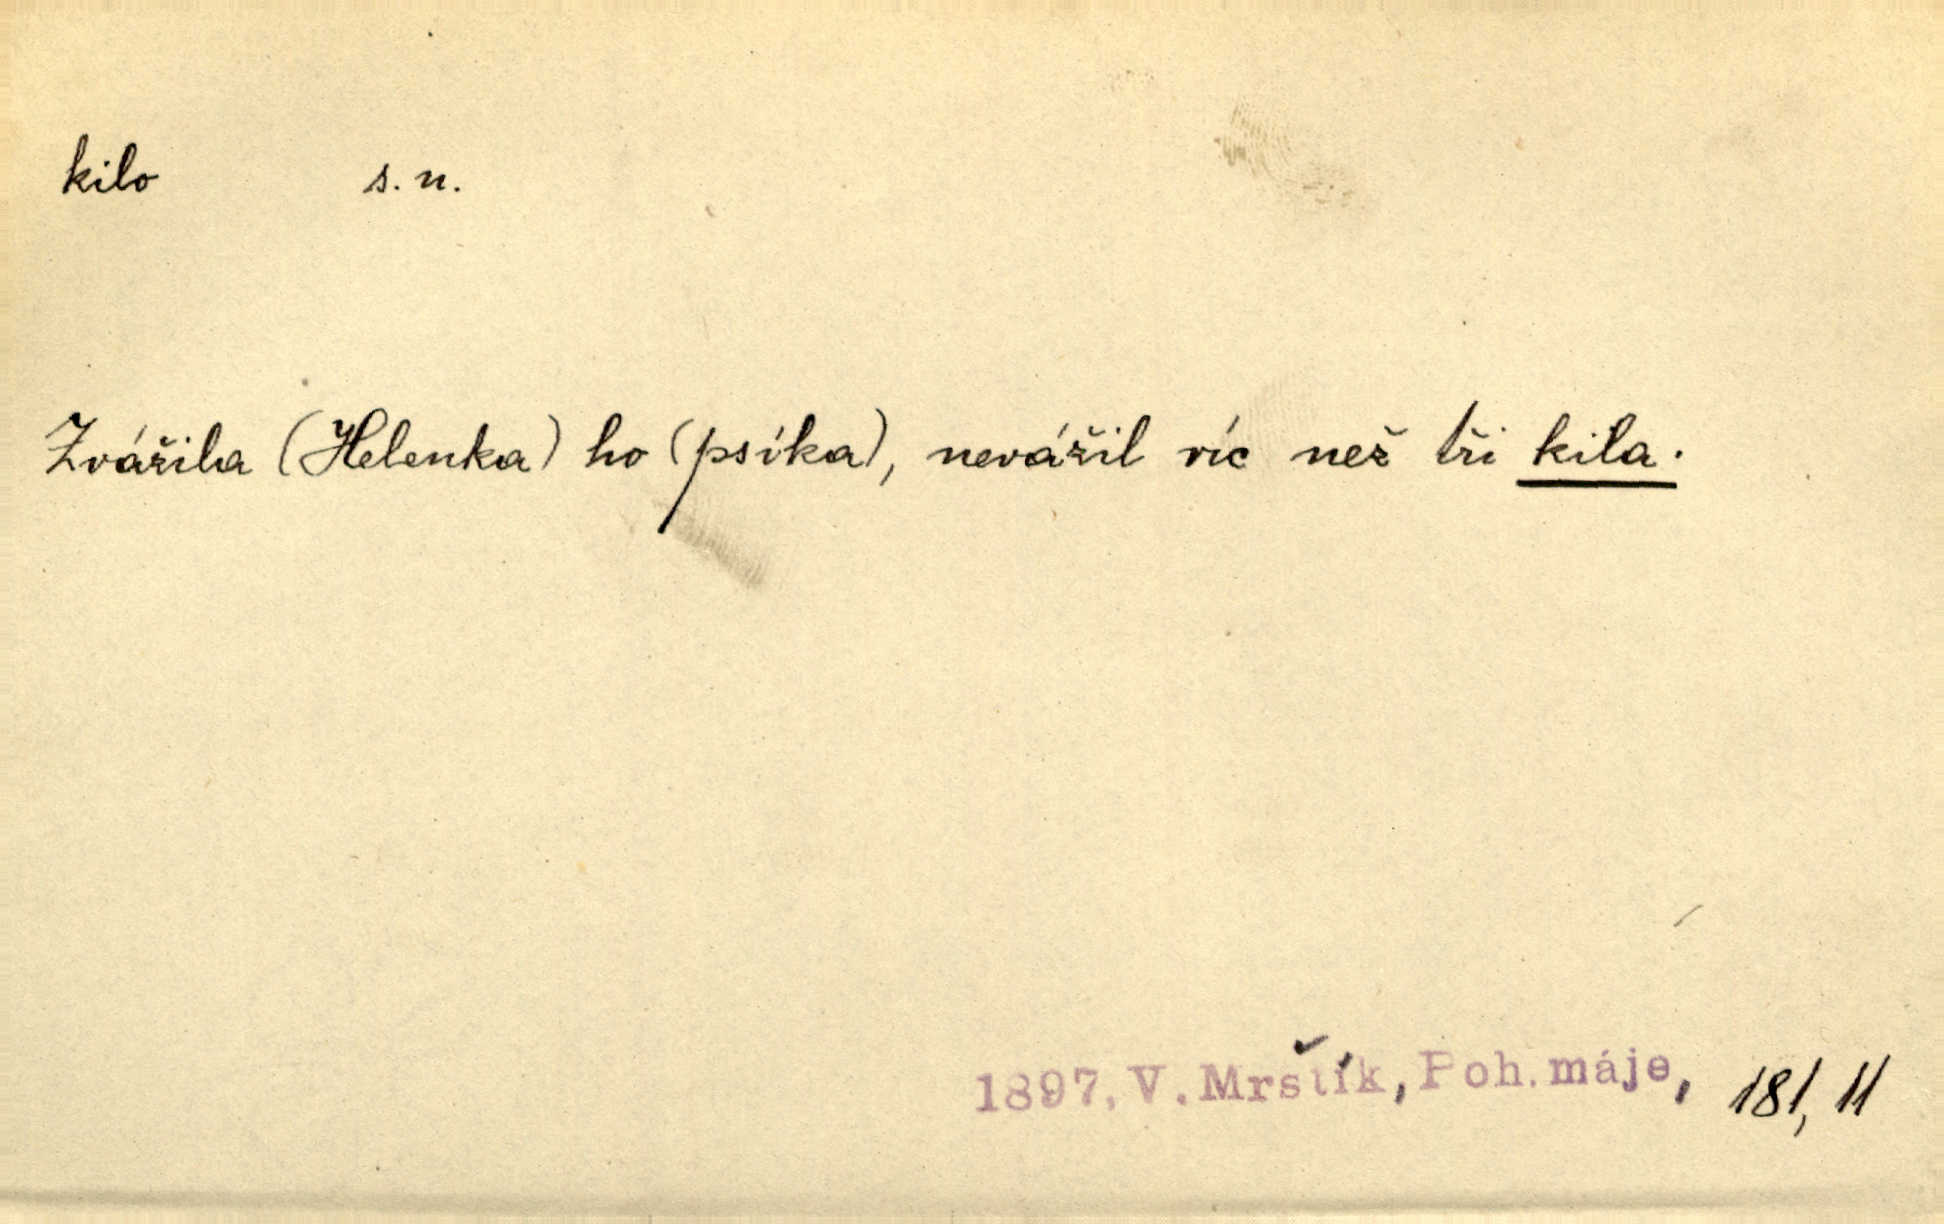 kilo s. n.
Zvážila (Helenka) ho (psíka), nevážil víc než tři kila.
1897, V. Mrštík, Poh. máje, 181, 11